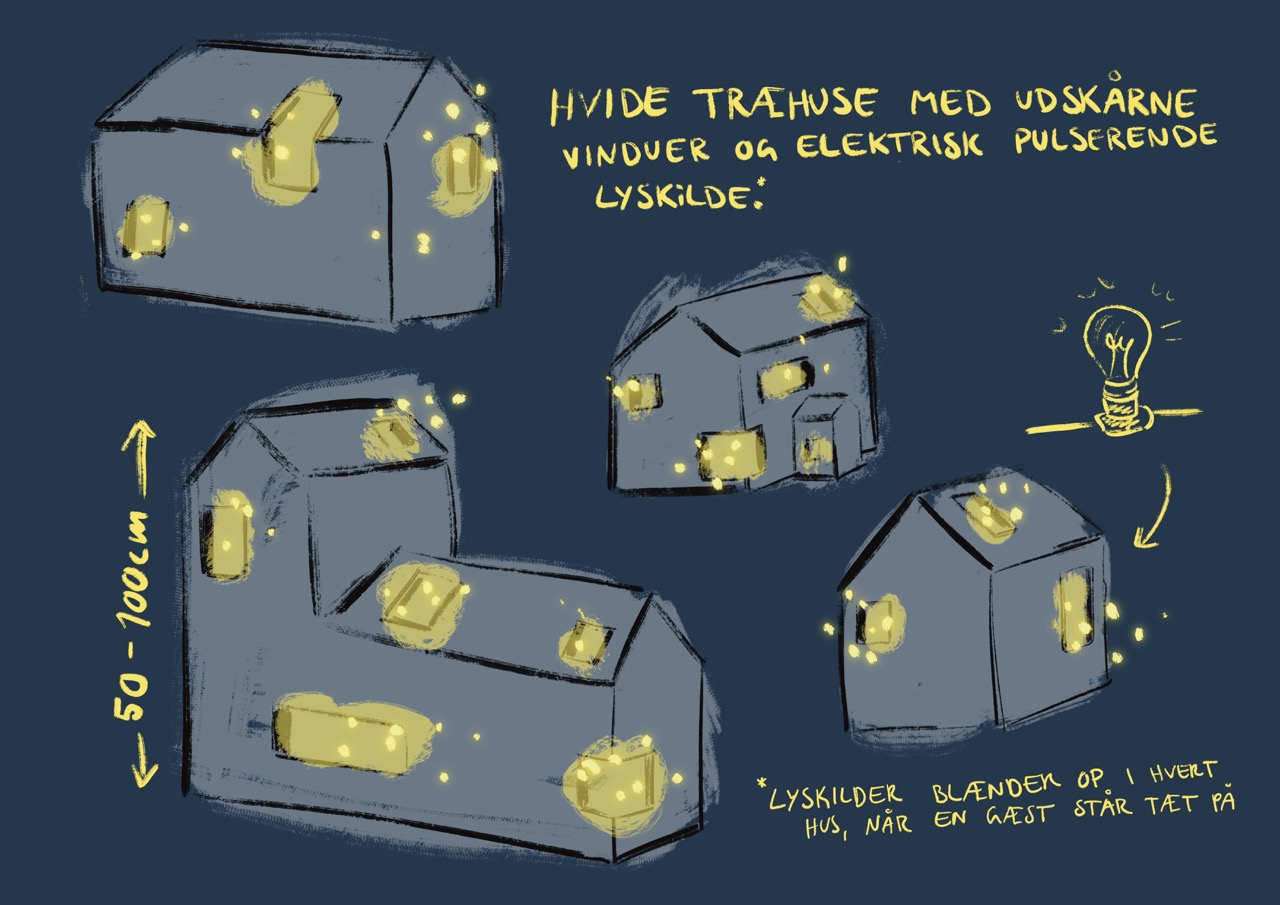 HVIDE TRÆHUSE MED UDSKÅRNE
VINDUER OG ELEKTRISK PULSERENDE
LYSKILDE.*
50 - 100cm
*LYSKILDER BLÆNDER OP I HVERT
HUS, NÅR EN GÆST STÅR TÆT PÅ